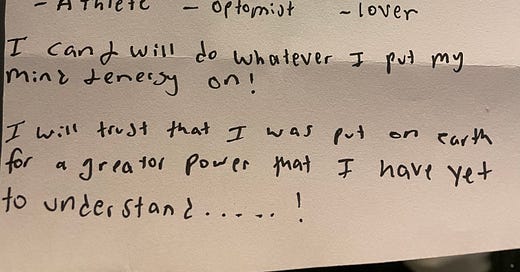 - Athlete - optomist - lover
I can & will do whatever I put my
mind & energy on!
I will trust that I was put on earth
for a greator power that I have yet
to understand.....!